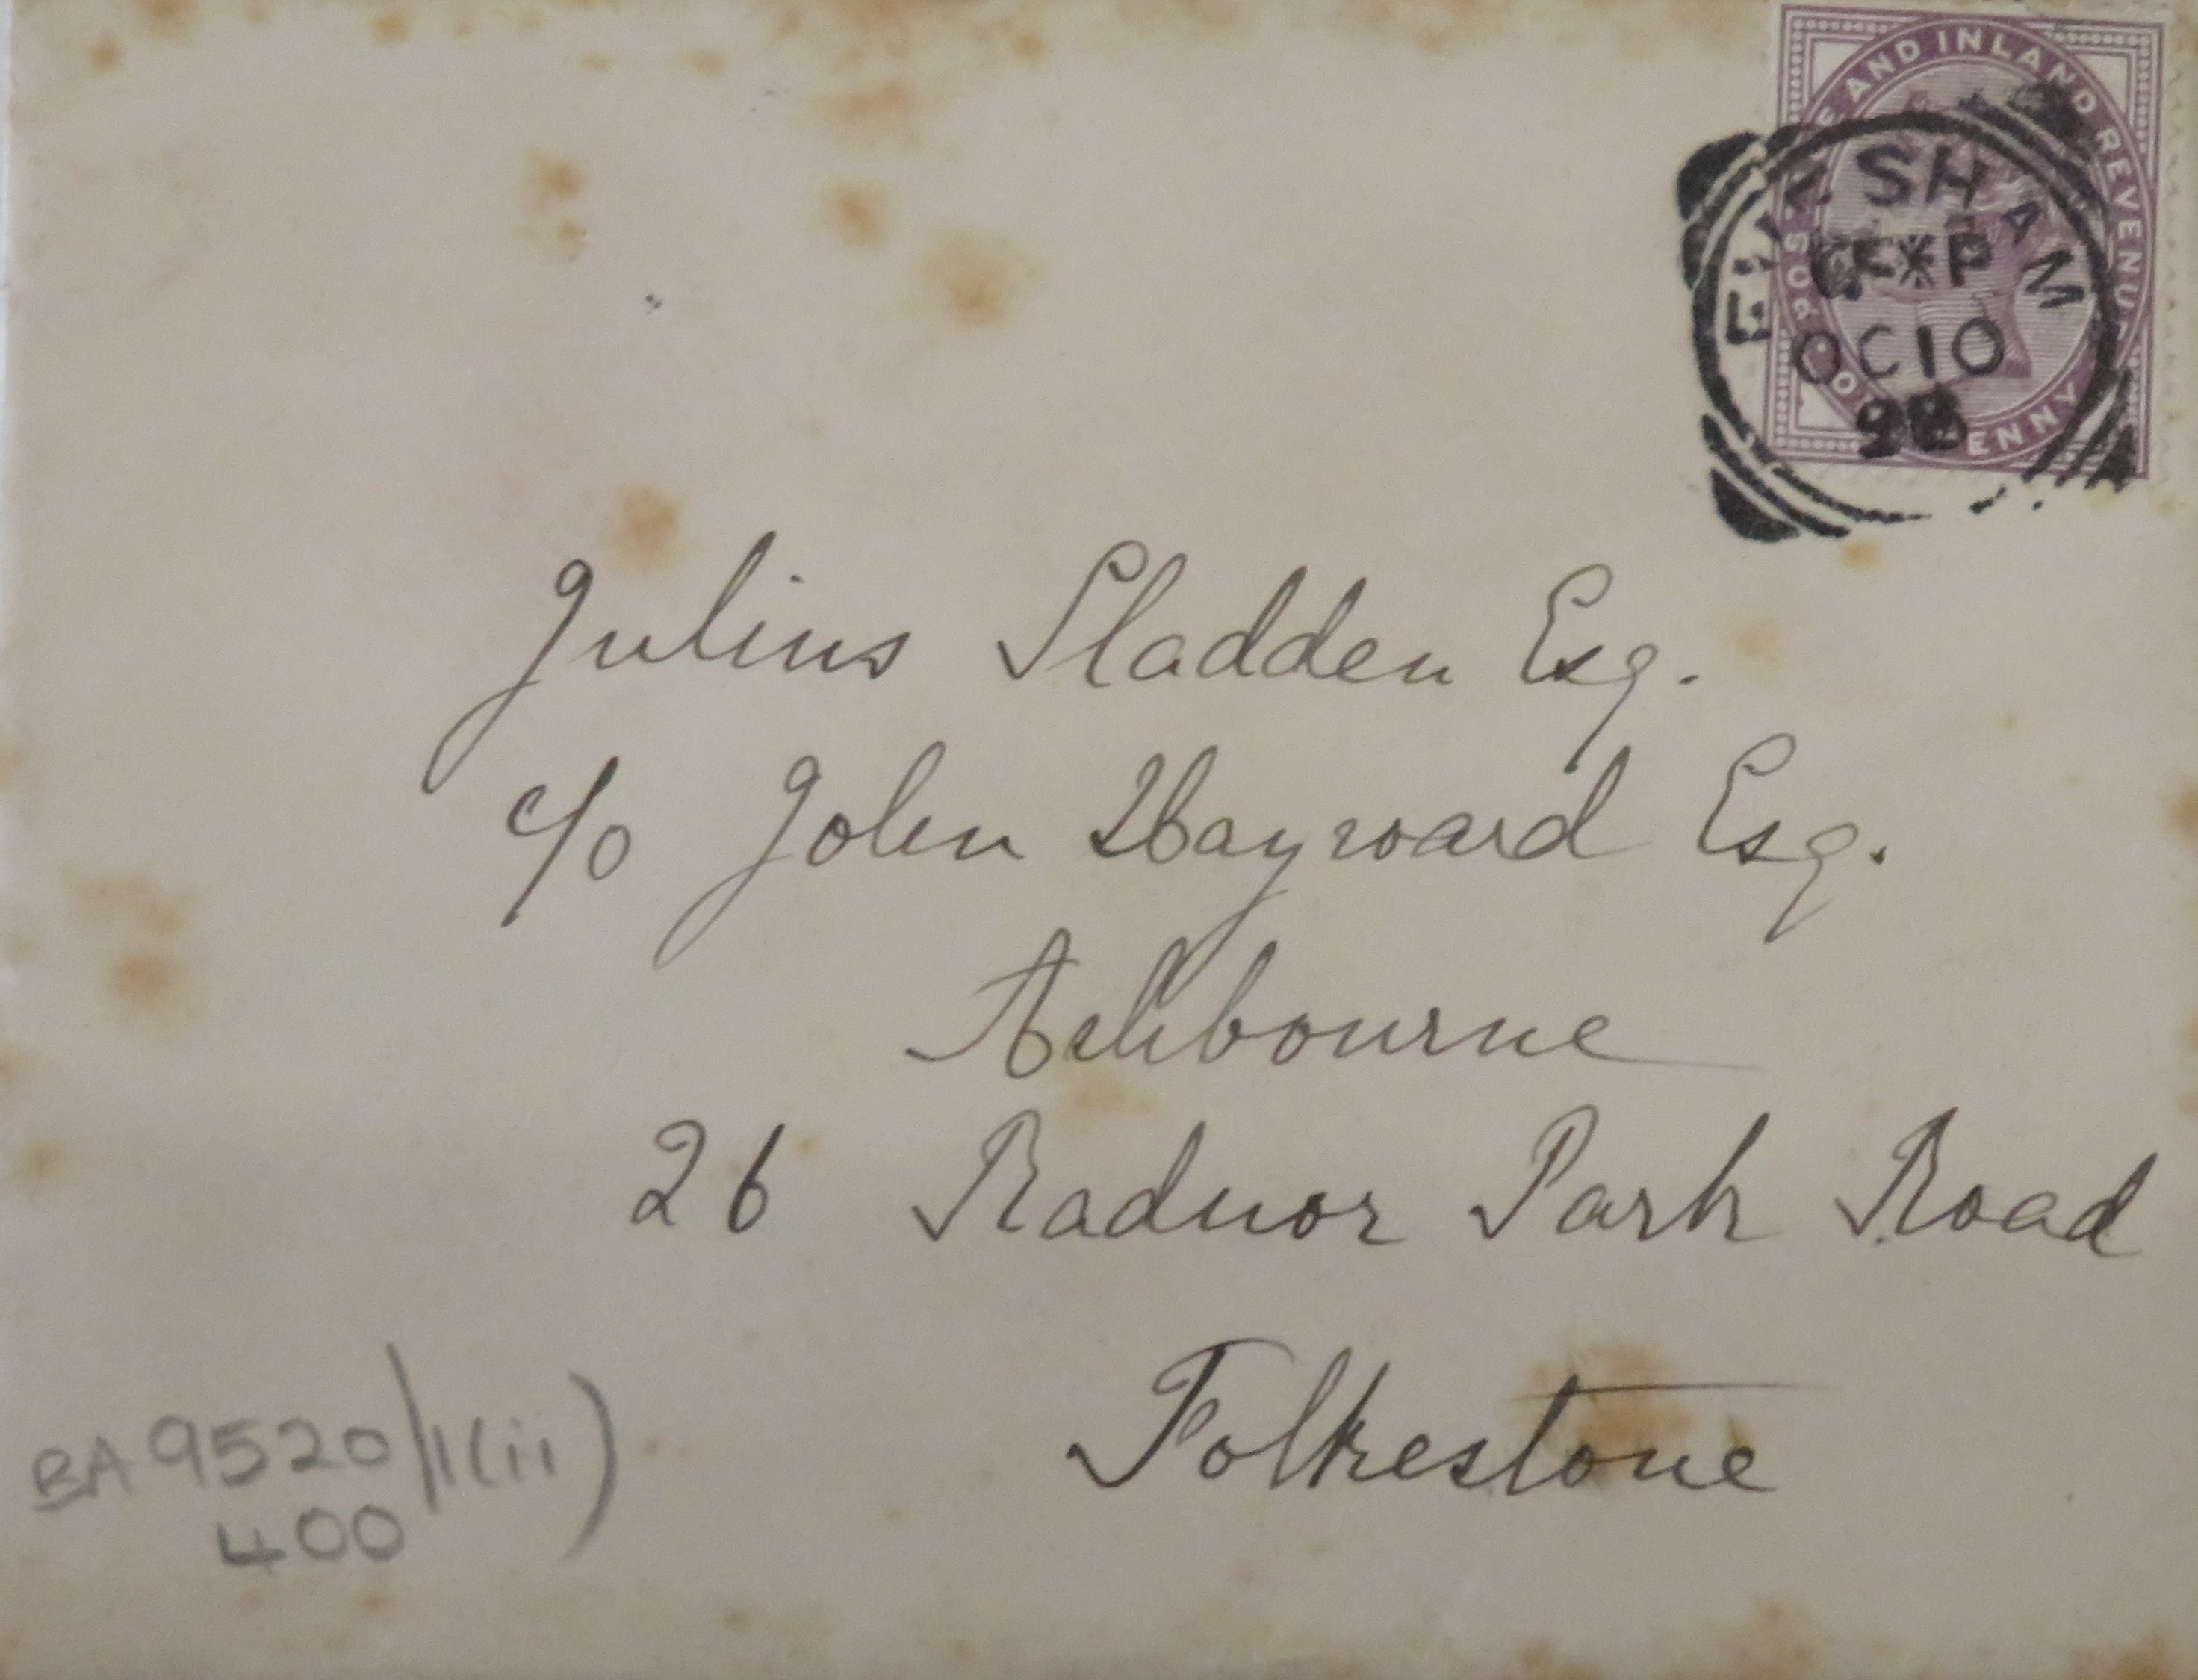 POSTAGE AND INLAND REVENUE
ONE PENNY
EVESHAM
OC 10
98
Julius Sladden Esq.
c/o John Hayward Esq.
Ashbourne
26 Radnor Park Road
Folkestone
BA 9520/1(ii)
400